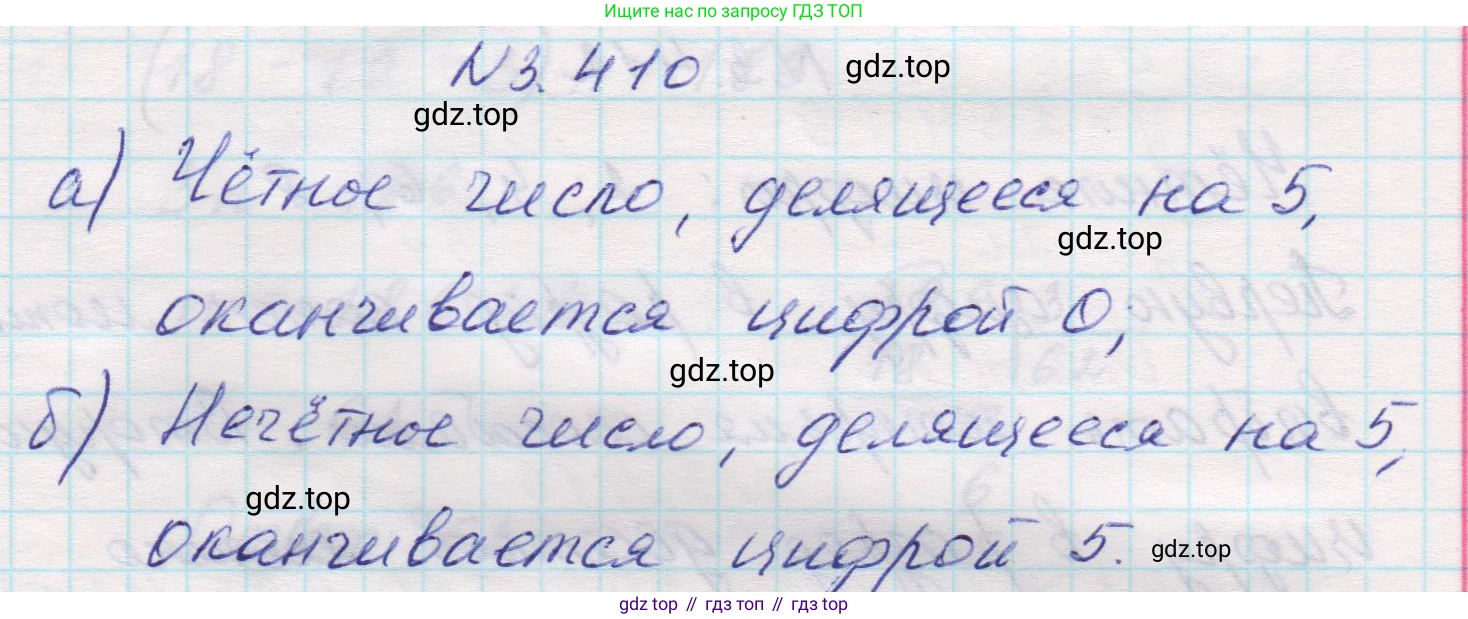 Ищите нас по запросу ГДЗ ТОП
N 3.410
gdz.top
gdz.top
а) Чётное число, делящееся на 5,
gdz.top
оканчивается цифрой 0;
gdz.top
б) Нечётное число, делящееся на 5,
gdz.top
оканчивается цифрой 5.
gdz.top
gdz top // гдз топ // гдз top